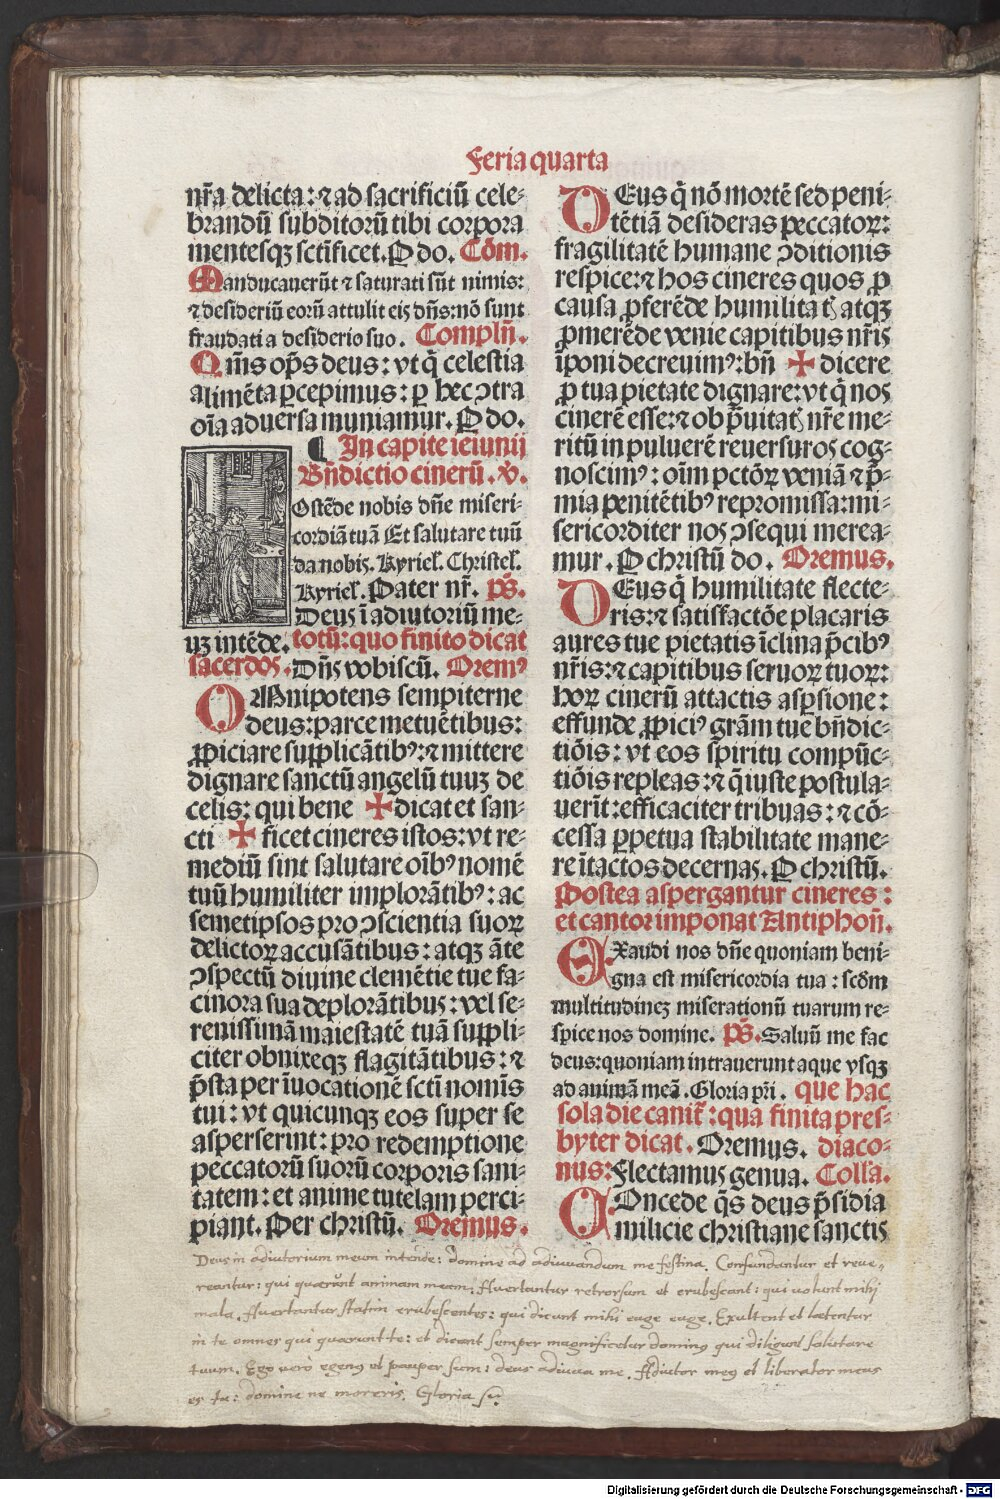 Feria quarta
nr̃a delicta: ⁊ ad sacrificiũ cele⸗
brandũ subditorũ tibi corpora
mentesqȝ sctĩficet. P do. Cõm.
Manducauerũt ⁊ saturati sũt nimis:
⁊ desideriũ eorũ attulit eis dñs: nõ sunt
fraudati a desiderio suo. Complñ.
Qm̃s op̃s deus: vt q̃ celestia
alimẽta ꝑcepimus: ꝑ hec ↄtra
oĩa aduersa muniamur. P do.
¶ In capite ieiunii
Bñdictio cinerũ. v̾.
Ostẽde nobis dñe miseri⸗
cordiã tuã Et salutare tuũ
da nobis. Kyriel̃. Christel̃.
Kyriel̃. Pater nr̃. ps̃.
Deus ĩ adiutoriũ me⸗
uȝ intẽde. totũ: quo finito dicat
sacerdos. Dñs vobiscũ. Orem⁹
OMnipotens sempiterne
deus: parce metuẽtibus:
ꝓpiciare supplicãtib⁹: ⁊ mittere
dignare sanctũ angelũ tuuȝ de
celis: qui bene ✠ dicat et san⸗
cti ✠ ficet cineres istos: vt re⸗
mediũ sint salutare oĩb⁹ nomẽ
tuũ humiliter implorãtib⁹: ac
semetipsos pro ↄscientia suoꝝ
delictoꝝ accusãtibus: atqȝ ãte
ↄspectũ diuine clemẽtie tue fa⸗
cinora sua deplorãtibus: vel se⸗
renissimã maiestatẽ tuã suppli⸗
citer obnixeqȝ flagitãtibus: ⁊
p̃sta per ĩuocationẽ sctĩ nomĩs
tui: vt quicunqȝ eos super se
asperserint: pro redemptione
peccatorũ suorũ corporis sani⸗
tatem: et anime tutelam perci⸗
piant. Per christũ. Oremus.
DEus q̃ nõ mortẽ sed peni⸗
tẽtiã desideras peccatoꝝ:
fragilitatẽ humane ↄditionis
respice: ⁊ hos cineres quos ꝓ
causa ꝓferẽde humilitatꝭ atqȝ
ꝓmerẽde venie capitibus nr̃is
ĩponi decreuim⁹: bñ ✠ dicere
ꝓ tua pietate dignare: vt q̃ nos
cinerẽ esse: ⁊ ob p̃uitatꝭ nr̃e me⸗
ritũ in puluerẽ reuersuros cog⸗
noscim⁹: oĩm pctõꝝ veniã ⁊ p̃⸗
mia penitẽtib⁹ repromissa: mi⸗
sericorditer nos ↄsequi merea⸗
mur. P christũ do. Oremus.
DEus q̃ humilitate flecte⸗
ris: ⁊ satisfactõe placaris
aures tue pietatis ĩclina p̃cib⁹
nr̃is: ⁊ capitibus seruoꝝ tuoꝝ:
hoꝝ cinerũ attactis aspsione:
effunde ꝓpici⁹ grãm tue bñdic⸗
tiõis: vt eos spiritu compũc⸗
tiõis repleas: ⁊ q̃ iuste postula⸗
uerĩt: efficaciter tribuas: ⁊ cõ⸗
cessa ꝑpetua stabilitate mane⸗
re ĩtactos decernas. P christũ.
Postea aspergantur cineres:
et cantor imponat Antiphoñ.
EXaudi nos dñe quoniam beni⸗
gna est misericordia tua: scd̃m
multitudineȝ miserationũ tuarum re⸗
spice nos domine. ps̃. Saluũ me fac
deus: quoniam intrauerunt aque vsqȝ
ad animã meã. Gloria pr̃i. que hac
sola die canit̃: qua finita pres⸗
byter dicat. Oremus. diaco⸗
nus: Flectamus genua. Coll̃a.
COncede q̃s deus p̃sidia
milicie christiane sanctis
Deus in adiutorium meum intende: domine ad adiuuandum me festina. Confundantur et reue⸗
reantur: qui quærunt animam meam. Auertantur retrorsum et erubescant: qui volunt mihi
mala. Auertantur statim erubescentes: qui dicunt mihi euge euge. Exultent et lætentur
in te omnes qui quærunt te: et dicant semper magnificetur dominus qui diligunt salutare
tuum. Ego vero egenus et pauper sum: deus adiuua me. Adiutor meus et liberator meus
es tu: domine ne moreris. Gloria
Digitalisierung gefördert durch die Deutsche Forschungsgemeinschaft - DFG